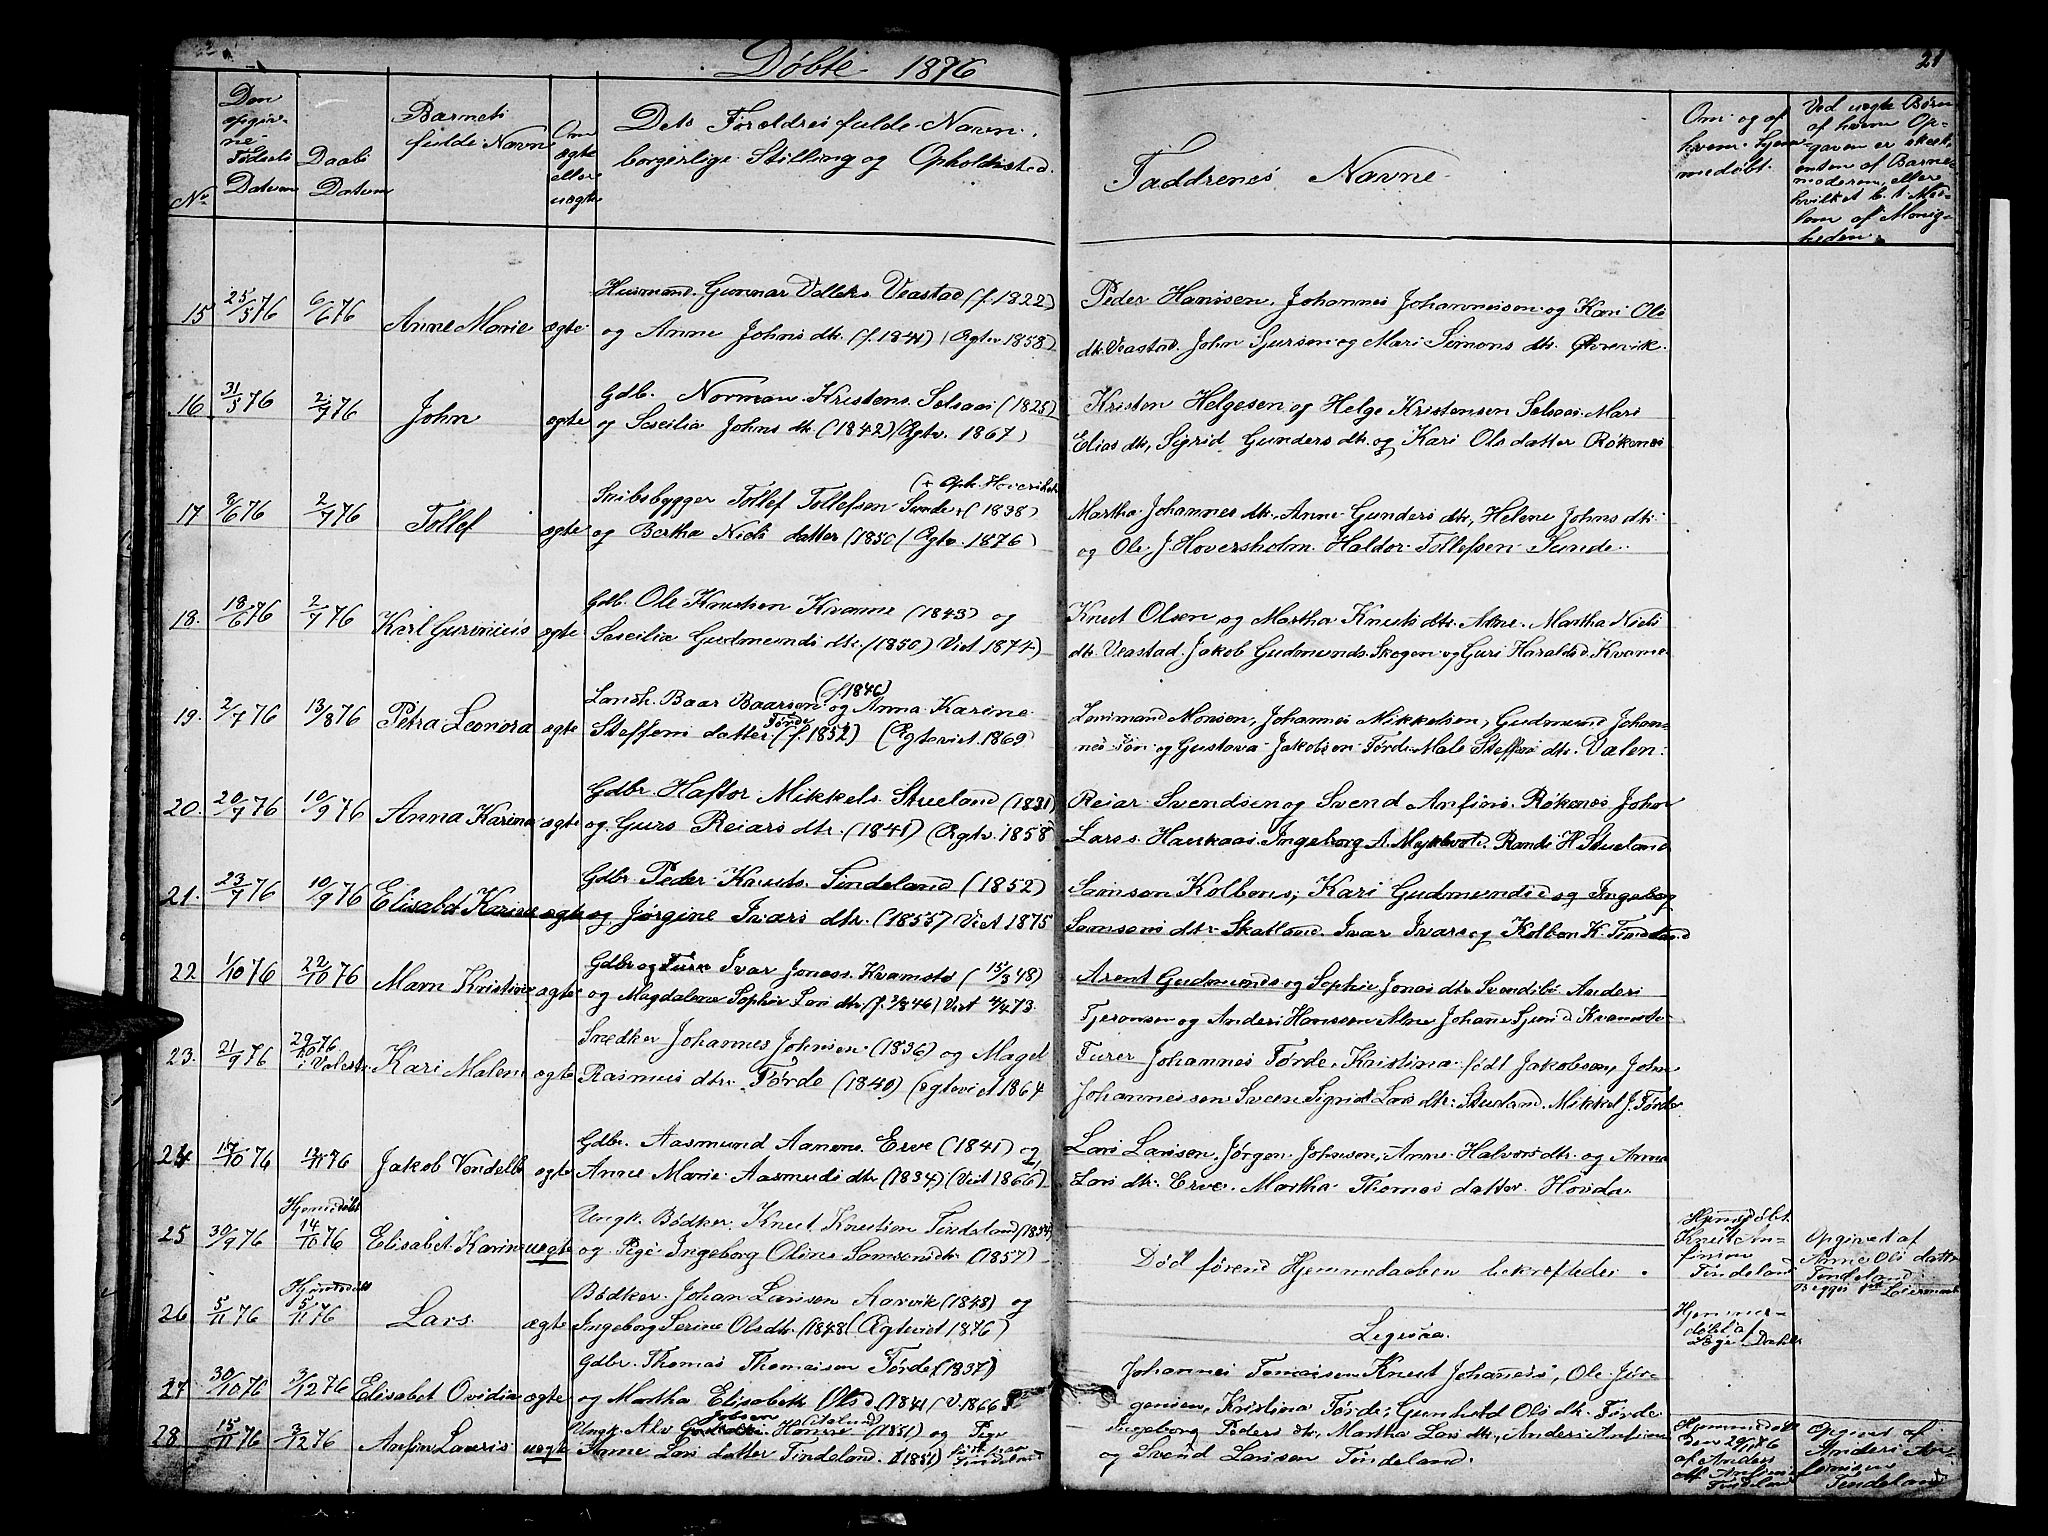 Døbte 1876
21
No
Den opgivne Fødsels Datum
Daabs Datum
Barnets fulde Navne
Om ægte eller uægte
Dets Forældres fulde Navn, borgerlige Stilling og Opholdssted.
Faddrenes Navne.
Om og af hvem hjemmedøbt
Ved uægte Børn af hvem Opgaven er skeet, enten af Barnemoderen, eller hvilket b. t. Medlem af Menigheden.
15 25/5 76 6/6 76 Anne Marie ægte Husmand Gunnar Veastad (f. 1822)
og Anne Johns dtr. (f. 1841) (Ægtev. 1858)
Peder Hansen, Johannes Johannessen og Kari Ols
dtr. Veastad. John Sjursen og Mari Simons dtr. Økrevik.
16 31/5 76 2/7 76 John ægte Gdb. Norman Kristens. Selsaas (1825)
og Sescilia Johns dtr. (1842) (Ægtev. 1867)
Kristen Helgesen og Helge Kristensen Selsaas. Mari
Elias dtr, Sigrid Gunders dtr. og Kari Ols datter Røkenes
17 8/6 76 2/7 76 Tollef ægte Skibsbygger Tollef Tollefsen Sunde + (1838)
(+ Oph. Hoversholm
og Bertha Niels datter (1850 (Ægtv. 1876)
Martha Johannes dtr., Anne Gunders dtr, Helene Johns dtr.
og Ole J. Hoversholm. Haldor Tollefsen Sunde.
18. 18/6 76 2/7 76 Karl Gurenius ægte Gdb. Ole Knutsen Kvame (1843) og
Sescilia Gudmunds dtr. (1850) Viet 1874)
Knut Olsen og Martha Knuts dtr. Alne. Martha Niels
dtr. Veastad. Jakob Gudmunds. Skogen og Guri Haralds d. Kvame
19. 2/7 76 13/8 76 Petra Leonora ægte Landh. Baar Baarsen (f. 1846) og Anna Karine
Steffens datter Førde (f. 1852) (Ægteviet 1869)
Monsen, Johannes Mikkelsen, Gudmund Johannes
Søn og Gustava Jakobsen Førde. Male Steffens dtr. Valen.
20. 20/7 76 10/9 76 Anna Karina ægte Gdbr. Haftor Mikkels. Stueland (1831)
og Guro Reiars dtr. (1841) (Ægtv. 1858
Reiar Svendsen og Svend Anfins. Røkenes John
Lars s. Haukaas. Ingeborg A. Myklevold. Randi H. Stueland
21. 23/7 76 10/9 76 Elisabet Karine ægte Gdbr. Peder Knuts. Tindeland (1852)
og Jørgine Ivars dtr. (1855) Viet 1875
Samson Kolbens, Kari Gudmunds d og Ingeborg
Samsons dtr. Skatland. Ivar Ivars og Kolben K. Tindeland
22. 1/10 76 22/10 76 Marn Kristine ægte Gdbr og Furer Ivar Jonass. Kvamsto (15/3 48)
og Magdalene Sophie Lars dtr. (f. 2/8 46) Viet 4/4 73.
Arent Gudmunds og Sophie Jonas dtr Svendsbø Anders
og Anders Hanssen Alne Johane Kvamsto.
23. 21/9 76 29/10 76 i Valestr. Kari Malene ægte Snedker Johannes Johnsen (1836) og Magel
Rasmus dtr. Førde (1840) (Ægteviet 1864
Furer Johannes Førde, Kristina født Jakobsen, John
Johannessen Sveen Sigrid Lars dtr. Stueland. Mikkel J. Førde
24 17/10 76 12/11 76 Jakob Vendelbo ægte Gdbr. Aasmund Aanens. Erve (1841) og
Anne Marie Aasmuds dtr (1834) (Viet 1866)
Lars Larsen, Jørgen Johnsen, Anne Halvors dtr. og Anna
Lars dtr. Erve. Martha Thomas datter Hovda.
25 30/9 76 Hjemdøbt 14/10 76 Elisabet Karine uægte Ungk. Bødker. Knut Knutsen Tindeland (1854)
og Pige Ingeborg Oline Samsonsdtr. (1857)
Død førend Hjemmedaaben bekræftedes.
Hjemdøbt Knut Anfinsen Tindeland
Opgivet af Anne Ols datter Tindeland.
Begges 1ste Leiermaal
26 5/11 76 Hjemdøbt 5/11 76 Lars. ægte Bødker. Johan Larsen Aarvik (1848) og
Ingeborg Serine Ols dtr. (1848 (Ægteviet 1876)
Ligesaa.
Hjemmedøbt af Læge Dahle
27 30/10 76 3/12 76 Elisabet Ovidia ægte Gdbr. Thomas Thomassen Førde (1837)
og Martha Elisabeth Ols d. (1841 (V. 1866)
Johannes Tomassen Knut Johanes s, Ole Jørgensen,
Kristina Førde, Gunhild Ols dtr. Førde
28 15/11 76 3/12 76 Anfin Lauris uægte Ungk. (1851) og Pige
Anne Lars datter Tindeland. (1851)
Ingeborg Peders dtr, Martha Lars dtr, Anders Anfinsen
og Svend Larsen Tindeland.
Hjemmedøbt den 20/11 76 af Anders Anfinsen Tindeland
Opgivet af Anders Anfinsen Tindeland